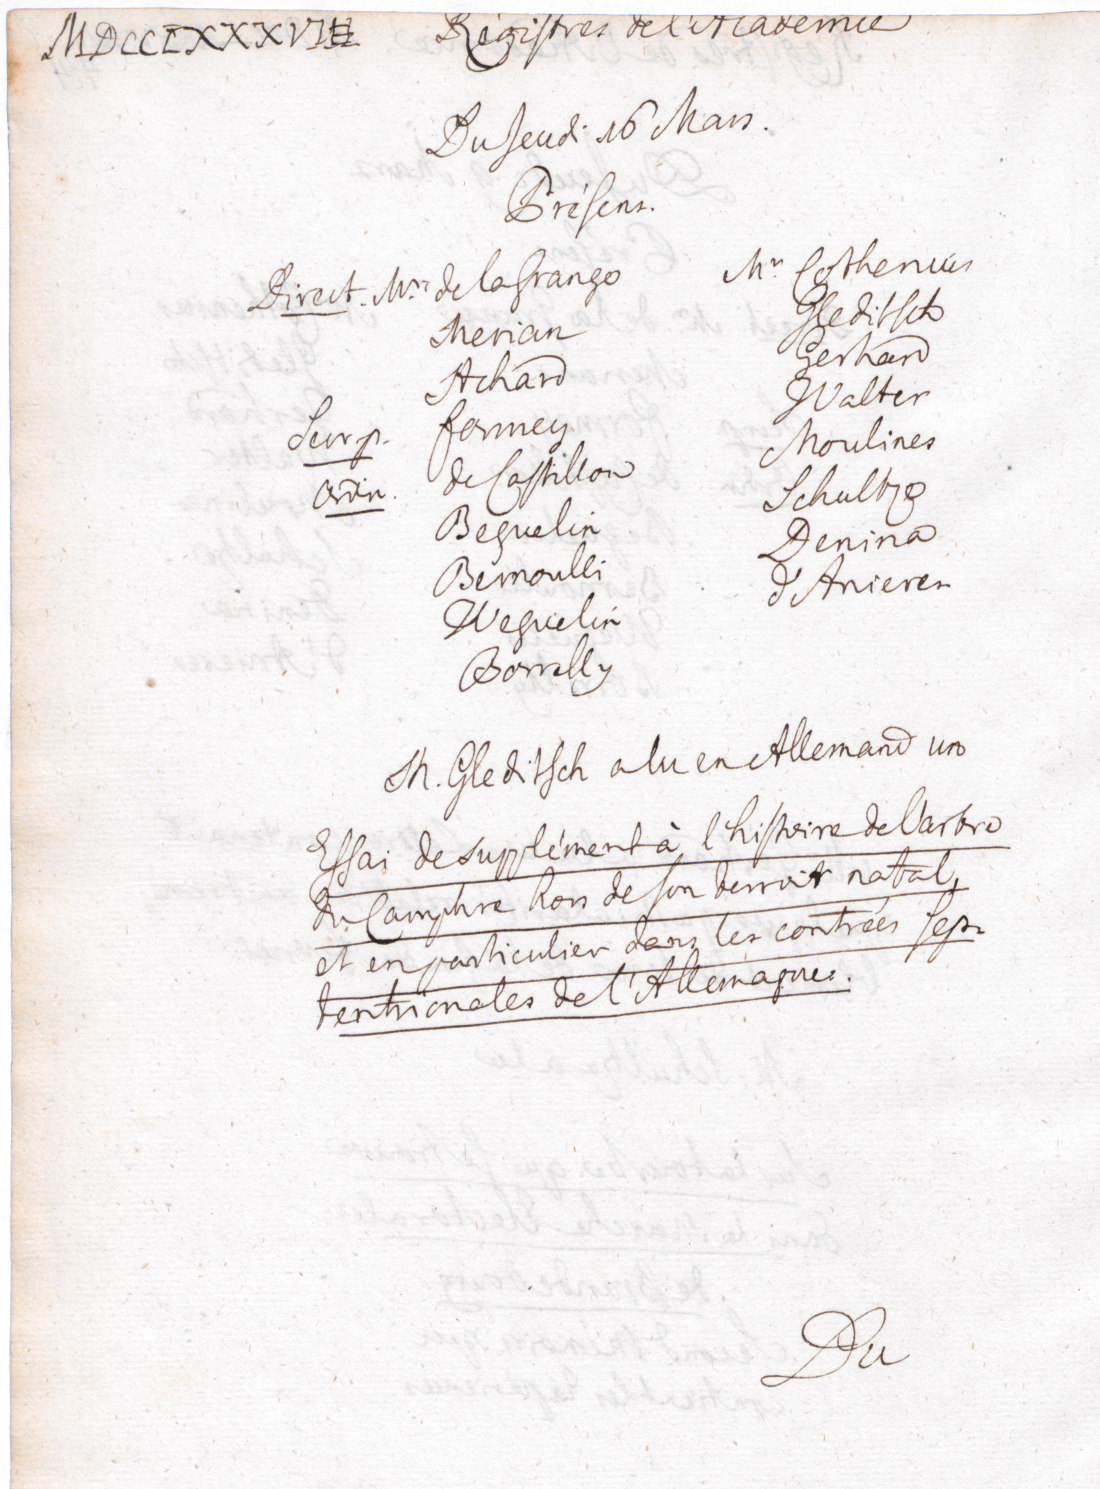 MDCCLXXXVI
Régistres de l'Academie
Du Jeudi 16 Mars.
Présens.
Direct. Mrs de la Grange
Merian
Achard
Survp. Formey
Ordin. de Castillon
Beguelin
Bernoulli
Weguelin
Borrelly
Mrs Cothenius
Gleditsch
Gerhard
Walter
Moulines
Schultze
Denina
d'Anieres
M. Gleditsch a lu en Allemand un
Essai de supplément à l'histoire de l'arbre
du Camphre hors de son terroir natal,
et en particulier dans les contrées sep-
tentrionales de l'Allemagne.
Du